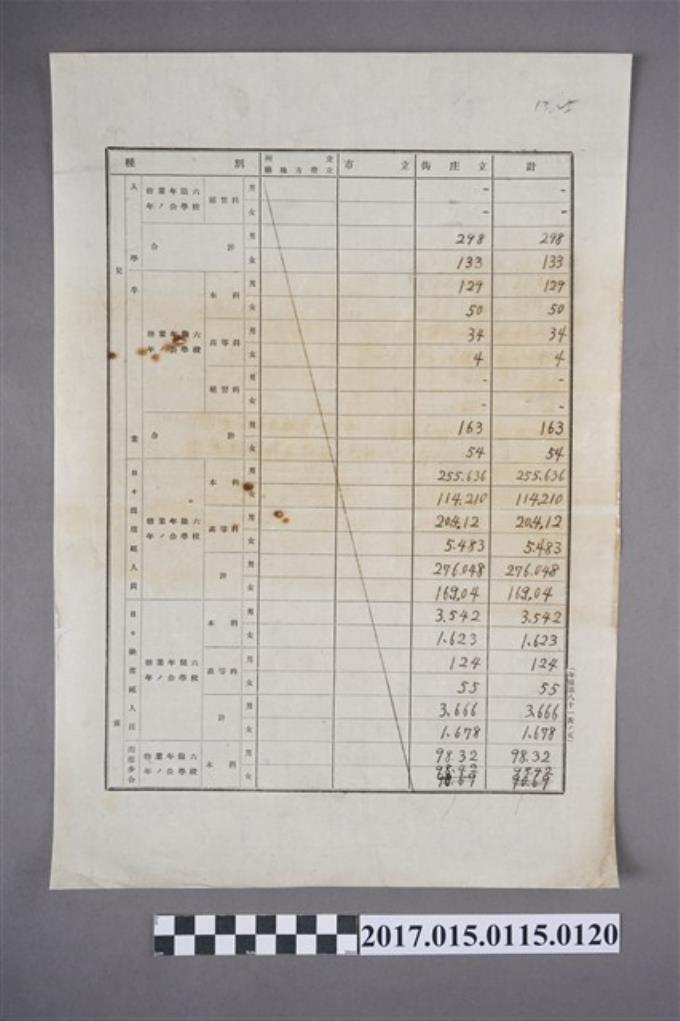 種別 市立 街庄立 計
修業年限六年ノ公學校 補習科 男 - -
女 - -
合計 男 298 298
女 133 133
修業年限六年ノ公學校 本科 男 129 129
女 50 50
高等科 男 34 34
女 4 4
補習科 男 - -
女 - -
合計 男 163 163
女 54 54
日々出席延人員 修業年限六年ノ公學校 本科 男 255.636 255.636
女 114.210 114.210
高等科 男 204.12 204.12
女 5.483 5.483
計 276.048 276.048
169.04 169.04
日々缺席延人員 修業年限六年ノ公學校 本科 男 3.542 3.542
女 1.623 1.623
高等科 男 124 124
女 55 55
計 男 3.666 3.666
女 1.678 1.678
出席步合 修業年限六年ノ公學校 本科 男 98.32 98.32
女
2017.015.0115.0120